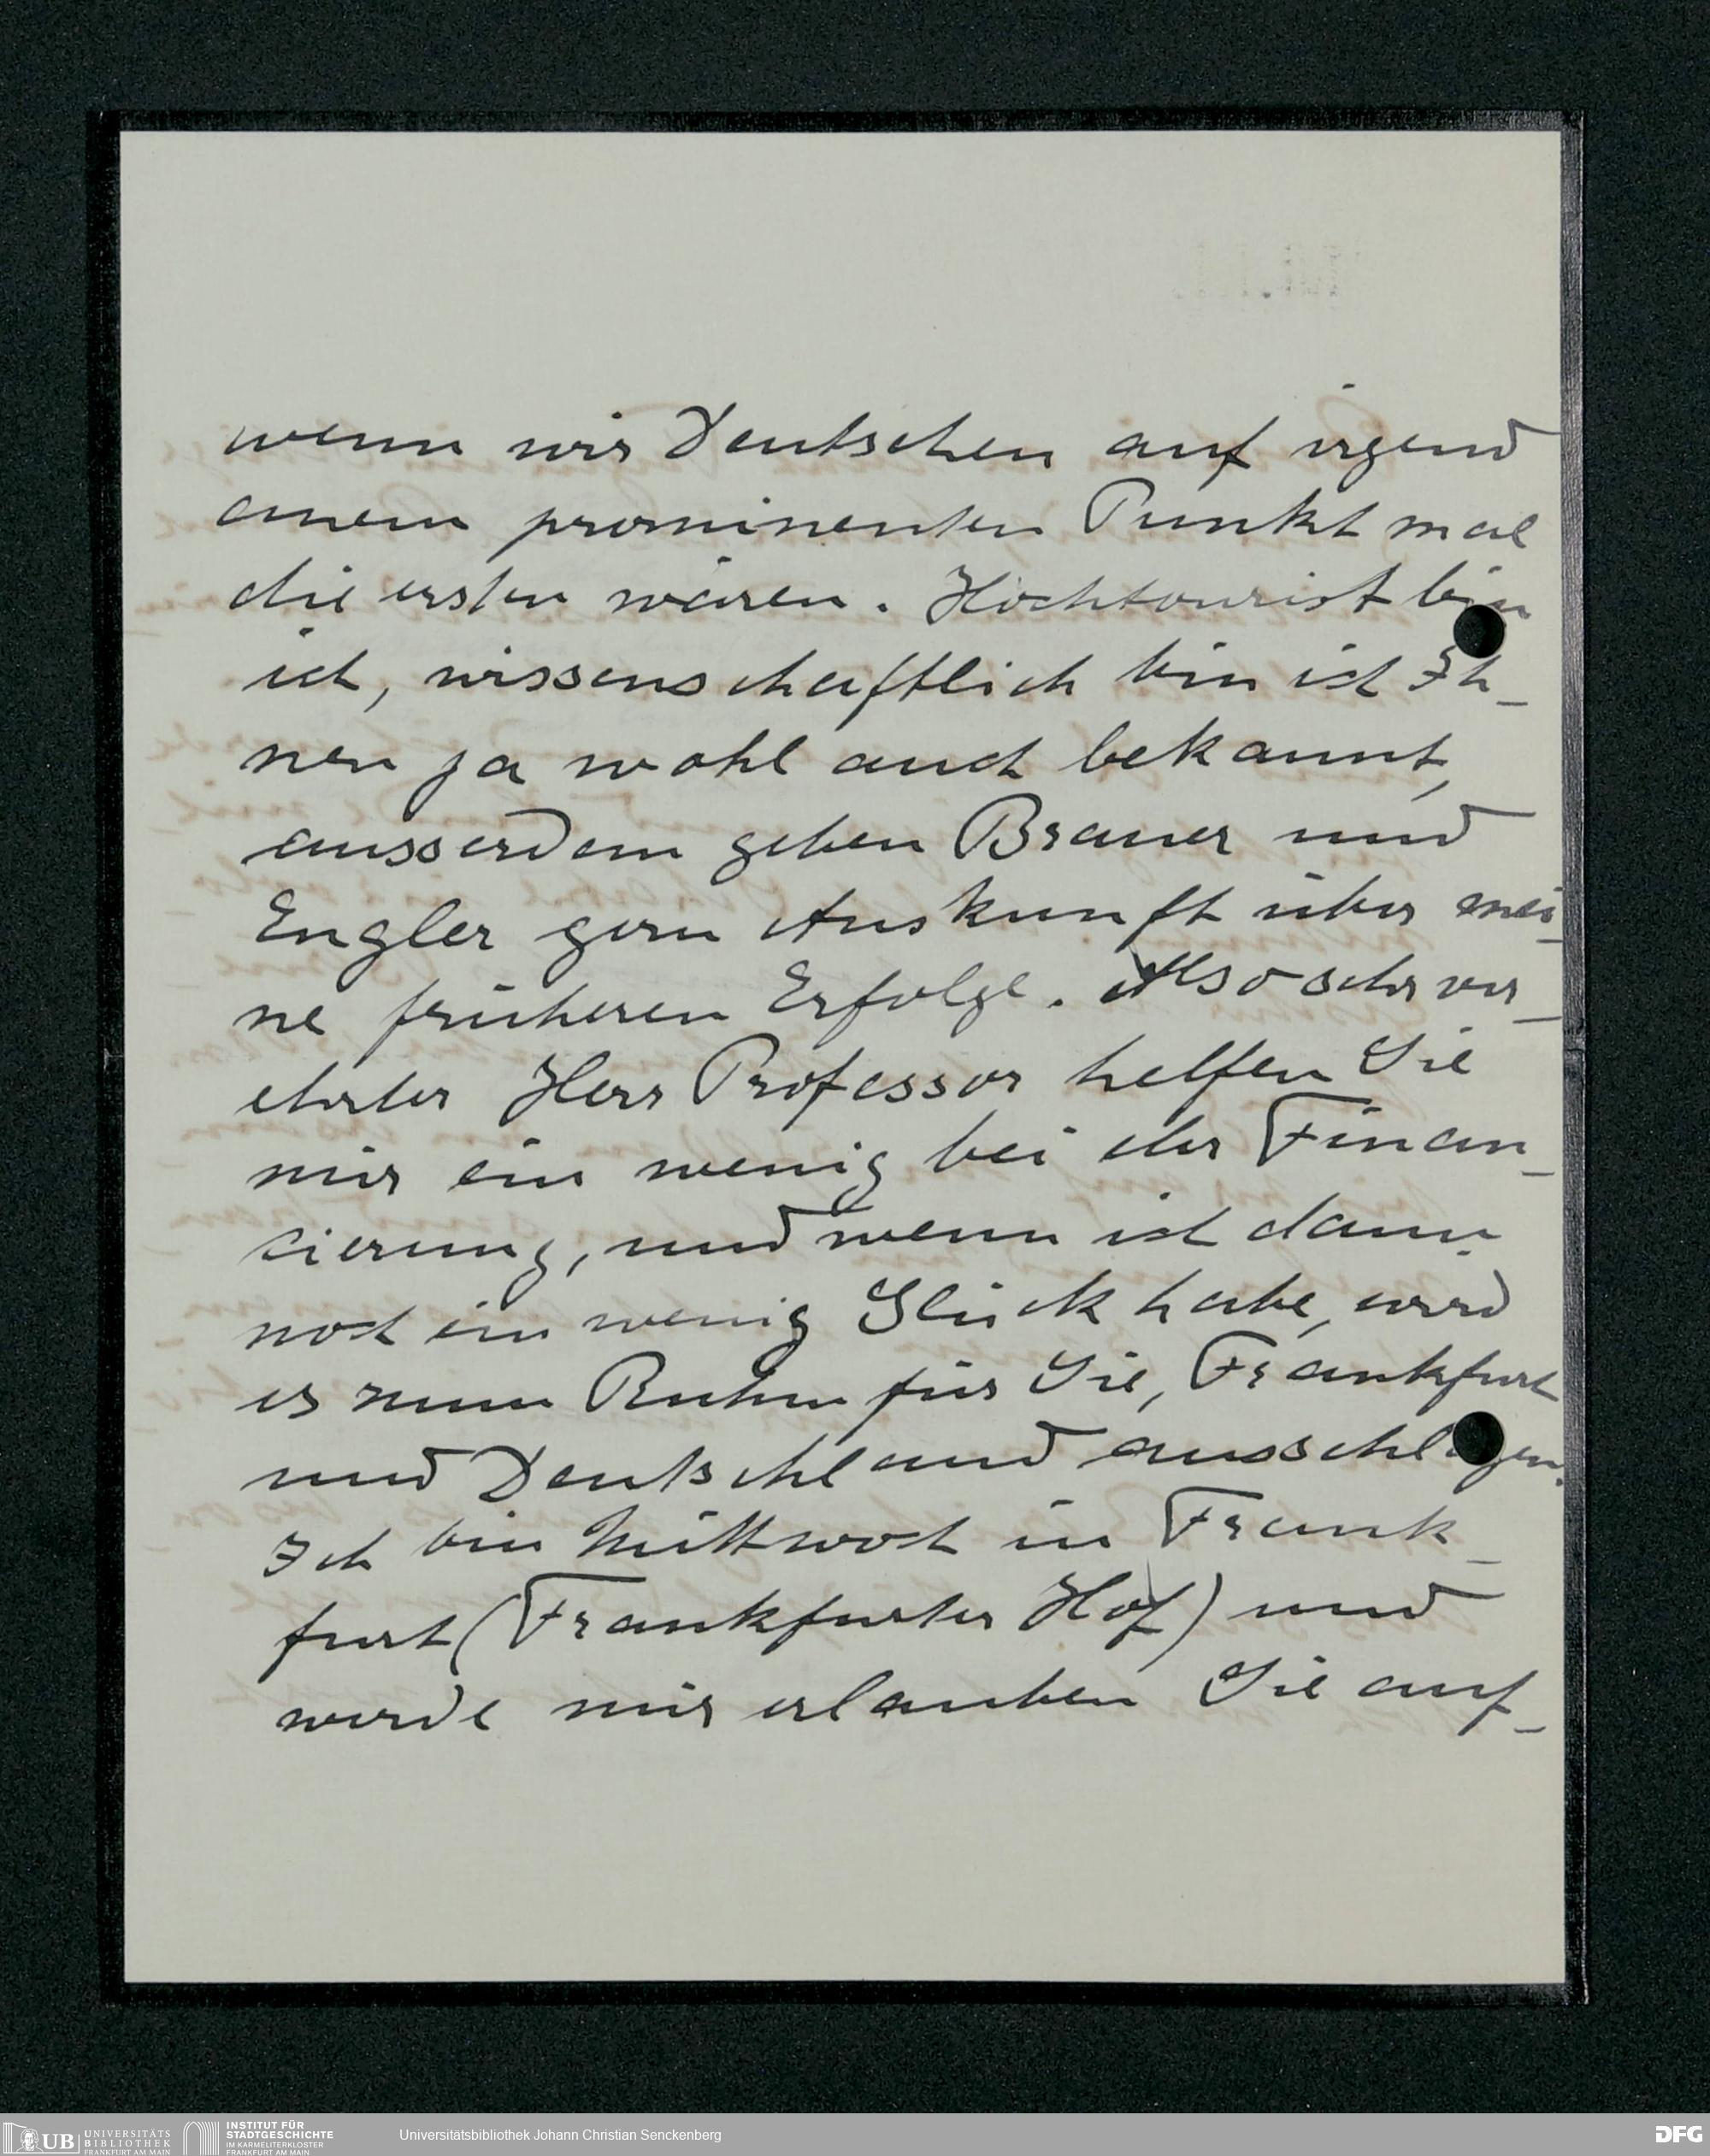 wenn wir Deutschen auf irgend
einem prominenten Punkt mal
die ersten wären. Hochtourist bin
ich, wissenschaftlich bin ich Ih-
nen ja wohl auch bekannt,
ausserdem geben Brauer und
Engler gern Auskunft über mei-
ne früheren Erfolge. Also sehr ver-
ehrter Herr Professor helfen Sie
mir ein wenig bei der Finan-
cierung, und wenn ich dann
noch ein wenig Glück habe, wird
es zum Ruhm für Sie, Frankfurt
und Deutschland ausschlagen.
Ich bin Mittwoch in Frank-
furt (Frankfurter Hof) und
werde mir erlauben Sie auf-
UB UNIVERSITÄTS
BIBLIOTHEK
FRANKFURT AM MAIN
INSTITUT FÜR
STADTGESCHICHTE
IM KARMELITERKLOSTER
FRANKFURT AM MAIN
Universitätsbibliothek Johann Christian Senckenberg
DFG